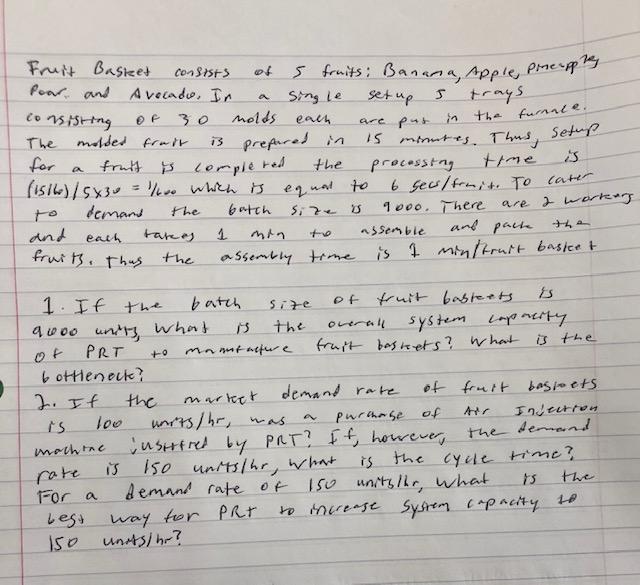 Fruit Basket consists of 5 fruits: Banana, Apple, Pineapple,
Pear and Avocado. In a single setup 5 trays
consisting of 30 molds each are put in the furnace.
The molded fruit is prepared in 15 minutes. Thus, setup
for a fruit is completed the processing time is
(15/60)/5x30 = 1/600 which is equal to 6 secs/fruit. To cater
to demand the batch size is 9000. There are 2 workers
and each takes 1 min to assemble and pack the
fruits. Thus the assembly time is 1 min/fruit basket
1. If the batch size of fruit baskets is
9000 units, what is the overall system capacity
of PRT to manufacture fruit baskets? What is the
bottleneck?
2. If the market demand rate of fruit baskets
is 100 units/hr, was a purchase of Air Injection
machine justified by PRT? If, however, the demand
rate is 150 units/hr, what is the cycle time?
For a demand rate of 150 units/hr, what is the
best way for PRT to increase system capacity to
150 units/hr?